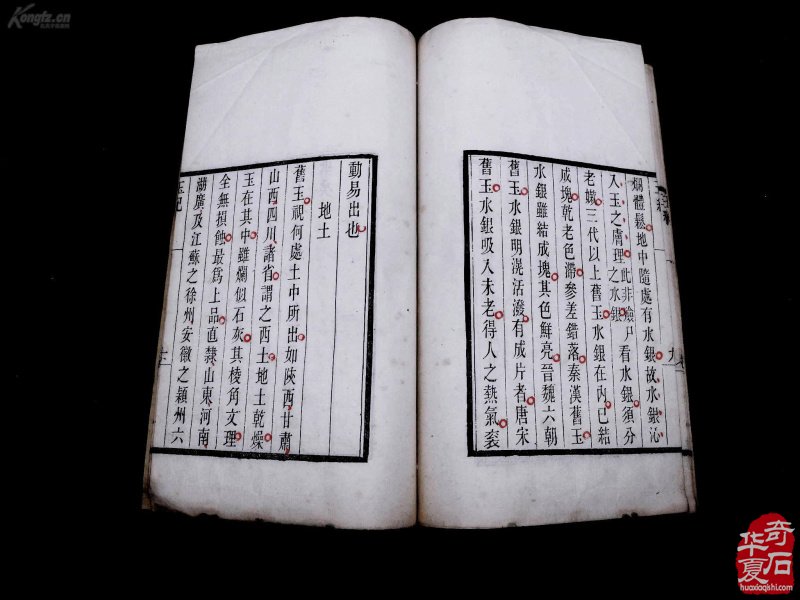 爛體鬆地中隨處有水銀故水銀沁
入玉之膚理此非殮尸之水銀看水銀須分
老嫩三代以上舊玉水銀在內已結
成塊乾老色滯參差錯落秦漢舊玉
水銀雖結成塊其色鮮亮晉魏六朝
舊玉水銀明滉活潑有成片者唐宋
舊玉水銀吸入未老得人之熱氣衮
動易出也
地土
舊玉視何處土中所出如陝西甘肅
山西四川諸省謂之西土地土乾燥
玉在其中雖爛似石灰其棱角文理
全無損蝕最爲上品直隸山東河南
湖廣及江蘇之徐州安徽之潁州六
玉紀
Kongfz.cn
華夏奇石
huaxiaqishi.com